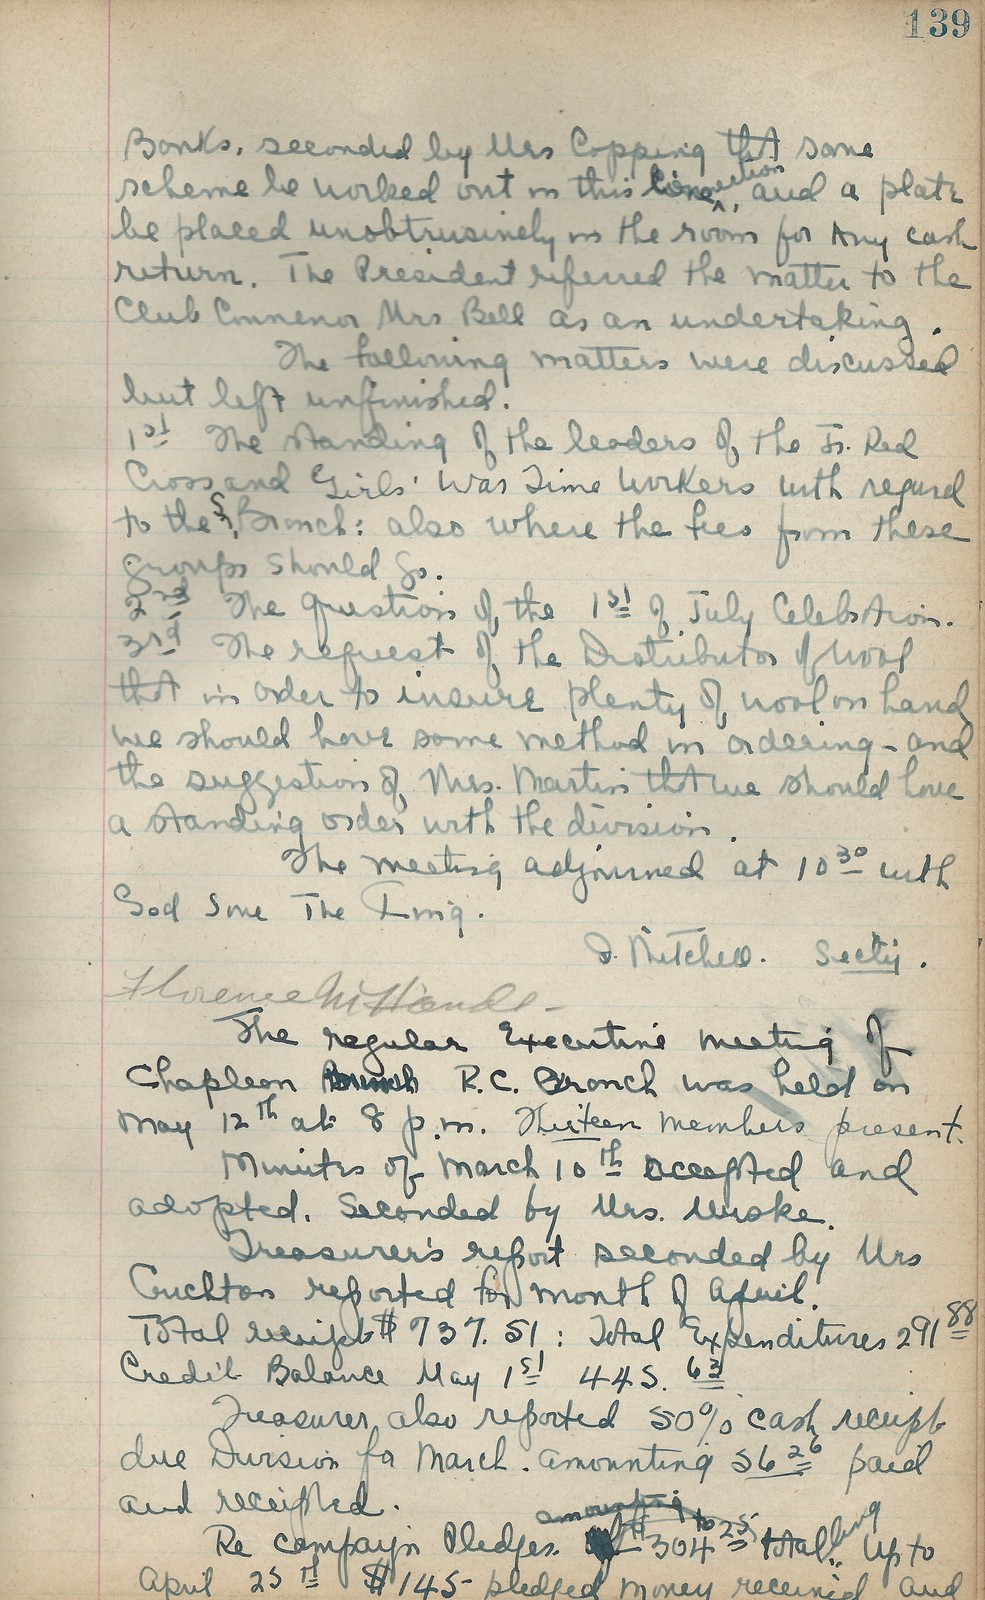 139
Banks, seconded by Mrs Copping that some
scheme be worked out in this connection, and a plate
be placed unobtrusively in the room for any cash
return. The President referred the matter to the
Club Convenor Mrs Bell as an undertaking.
The following matters were discussed
but left unfinished.
1st The standing of the leaders of the Jr. Red
Cross and Girls' War Time Workers with regard
to the Sr. Branch: also where the fees from these
groups should go.
2nd The question of the 1st of July Celebration.
3rd The request of the Distributor of wool
that in order to insure plenty of wool on hand
we should have some method in ordering - and
the suggestion of Mrs. Martin that we should have
a standing order with the division.
The meeting adjourned at 10 30 with
God Save The King.
J. Mitchell. Sect'y.
Florence
The regular Executive meeting of
Chapleau Branch R.C. Branch was held on
May 12th at 8 p.m. Thirteen members present.
Minutes of March 10th accepted and
adopted. Seconded by Mrs.
Treasurer's report seconded by Mrs
Crichton reported for month of April.
Total receipts $737.51: Total Expenditures 291 88
Credit Balance May 1st 445. 63
Treasurer also reported 50% cash receipts
due Division for March. amounting 56 26 paid
and receipted.
amounting to
Re campaign Pledges. $304 25 totalling. Up to
April 25th $145 - pledged money received and